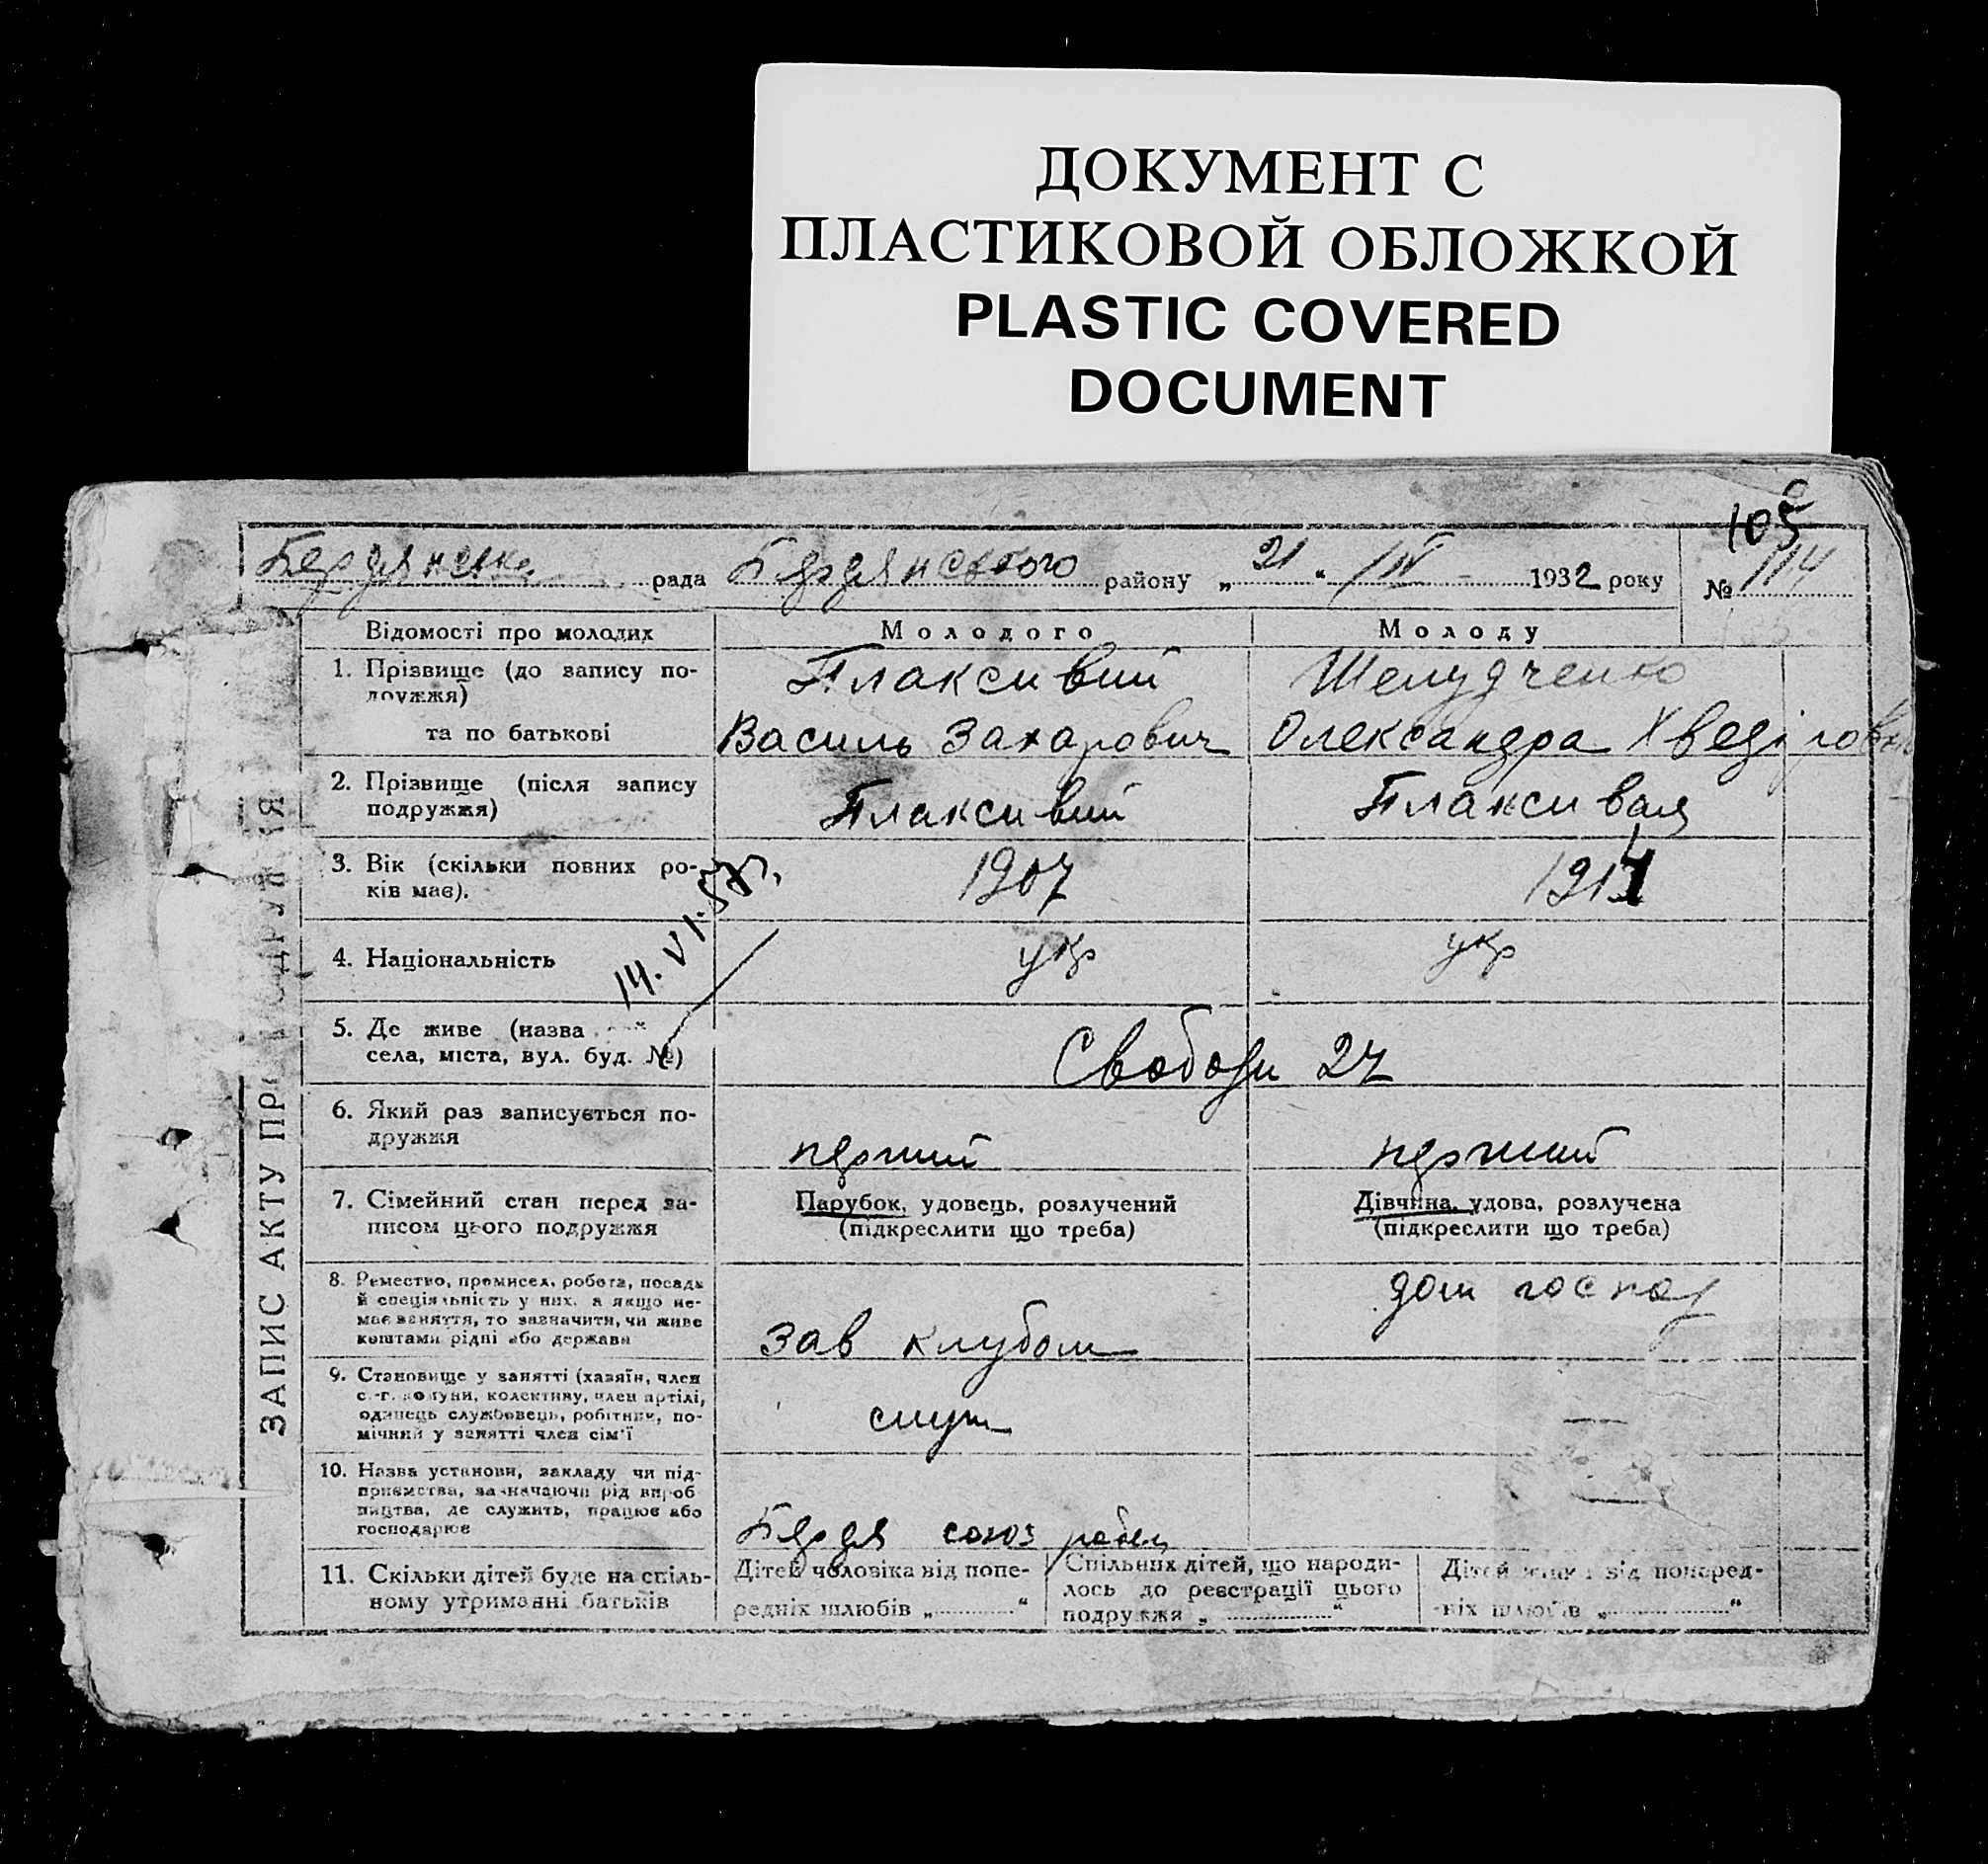 ДОКУМЕНТ С
ПЛАСТИКОВОЙ ОБЛОЖКОЙ
PLASTIC COVERED
DOCUMENT
105
Бердянська рада Бердянського району „21“ IV 1932 року № 114
ЗАПИС АКТУ ПРО
Відомості про молодих Молодого Молоду
1. Прізвище (до запису по-
дружжя) Плаксивий Шелудченко
та по батькові Василь Захарович Олександра Хведіровна
2. Прізвище (після запису
подружжя) Плаксивий Плаксивая
3. Вік (скільки повних ро-
ків має). 1907 1911
14. VI. 57г.
4. Національність укр укр
5. Де живе (назва
села, міста, вул. буд. №) Свободи 27
6. Який раз записується по-
дружжя перший перший
7. Сімейний стан перед за- Парубок, удовець, розлучений Дівчина, удова, розлучена
писом цього подружжя (підкреслити що треба) (підкреслити що треба)
8. Ремество, промисел, робота, посада
й спеціяльність у них, а якщо не-
має заняття, то зазначити, чи живе
коштами рідні або держави Зав клубом дом господ
9. Становище у занятті (хазяїн, член
с.-г. комуни, колективу, член артілі,
одинець службовець, робітник, по-
мічний у занятті член сім'ї служ —
10. Назва установи, закладу чи під-
приємства, зазначаючи рід вироб
ництва, де служить, працює або
господарює Бердя союз
11. Скільки дітей буде на спіль- Дітей чоловіка від попе- Спільних дітей, що народи- Дітей жінки від поперед-
ному утриманні батьків редніх шлюбів „ “ лось до реєстрації цього ніх шлюбів „ “
подружжя „ “